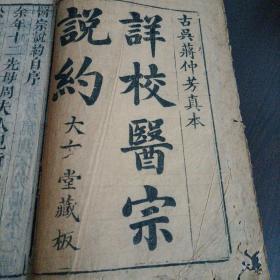 古吳蔣仲芳真本
詳校醫宗
說約
大文堂藏板
醫宗說約自序
余年十二先母周夫人見背